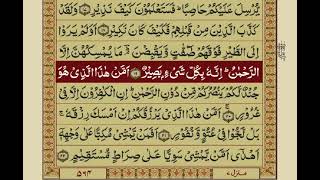 يُرْسِلَ عَلَيْكُمْ حَاصِبًا ؕ فَسَتَعْلَمُوْنَ كَيْفَ نَذِيْرِ ۝ وَلَقَدْ
كَذَّبَ الَّذِيْنَ مِنْ قَبْلِهِمْ فَكَيْفَ كَانَ نَكِيْرِ ۝ اَوَلَمْ يَرَوْا
اِلَى الطَّيْرِ فَوْقَهُمْ صٰٓفّٰتٍ وَّيَقْبِضْنَ ؔۘ مَا يُمْسِكُهُنَّ اِلَّا
الرَّحْمٰنُ ؕ اِنَّهٗ بِكُلِّ شَيْءٍۭ بَصِيْرٌ ﴿۱۹﴾ اَمَّنْ هٰذَا الَّذِيْ هُوَ
جُنْدٌ لَّكُمْ يَنْصُرُكُمْ مِّنْ دُوْنِ الرَّحْمٰنِ ؕ اِنِ الْكٰفِرُوْنَ اِلَّا فِيْ
غُرُوْرٍ ۝ اَمَّنْ هٰذَا الَّذِيْ يَرْزُقُكُمْ اِنْ اَمْسَكَ رِزْقَهٗ ۚ
بَلْ لَّجُّوْا فِيْ عُتُوٍّ وَّنُفُوْرٍ ۝ اَفَمَنْ يَّمْشِيْ مُكِبًّا عَلٰى وَجْهِهٖٓ
اَهْدٰٓى اَمَّنْ يَّمْشِيْ سَوِيًّا عَلٰى صِرَاطٍ مُّسْتَقِيْمٍ ﴿۲۲﴾
منزل ۷ ۵۹۴